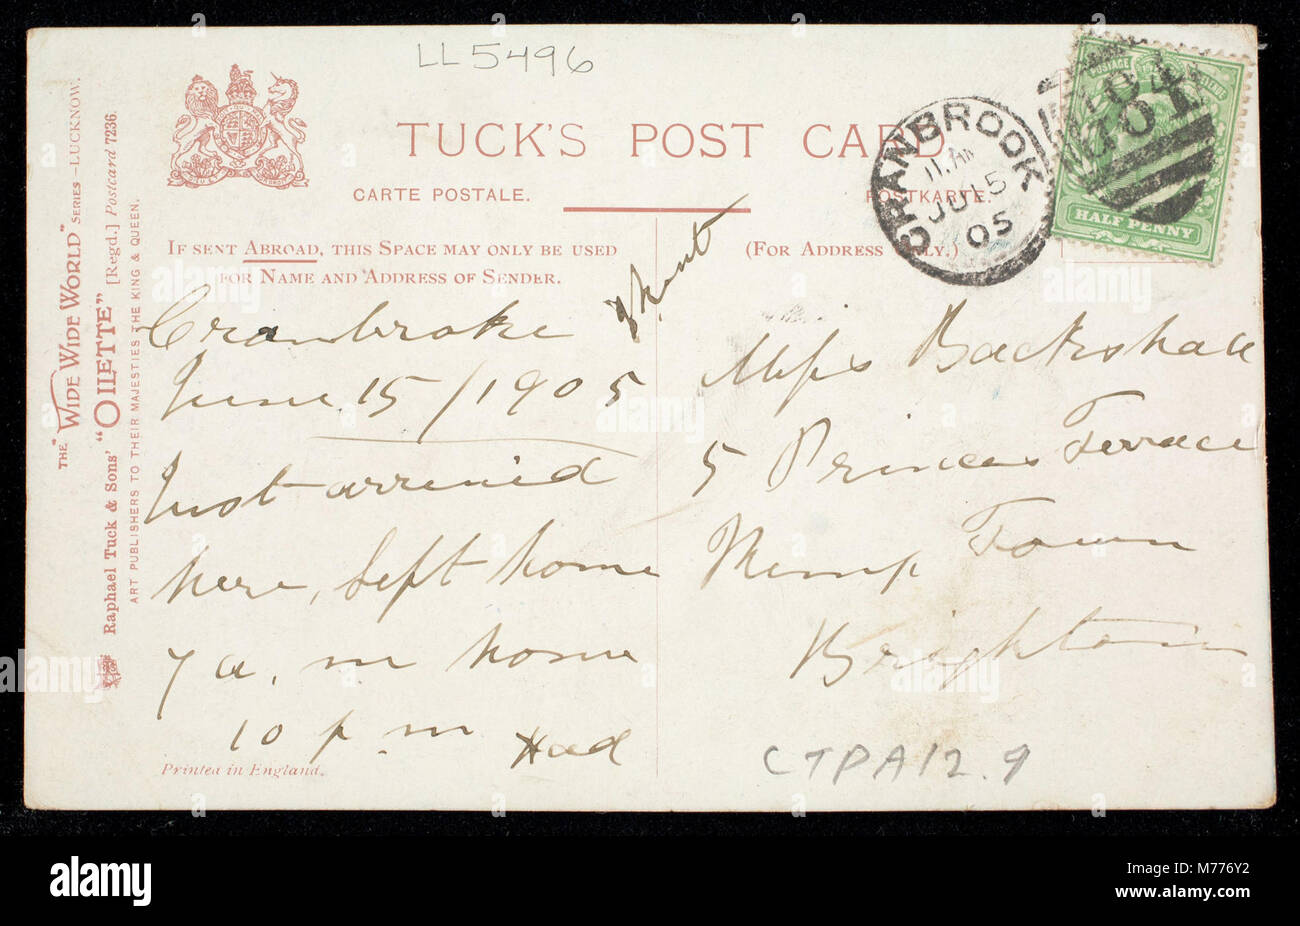 LL5496
TUCK'S POST CARD.
CARTE POSTALE.
POSTKARTE.
IF SENT ABROAD, THIS SPACE MAY ONLY BE USED
FOR NAME AND ADDRESS OF SENDER.
(FOR ADDRESS ONLY.)
THE "WIDE WIDE WORLD" SERIES – LUCKNOW.
Raphael Tuck & Sons' "OILETTE" [Regd.] Postcard 7236.
ART PUBLISHERS TO THEIR MAJESTIES THE KING & QUEEN.
CRANBROOK
11. AM
JU 15
05
POSTAGE REVENUE
HALF PENNY
Cranbroke
Kent
June 15/1905
Just arrived
here, left home
7 a. m home
10 p. m
Had
Miss Backshall
5 Princes Terrace
Kemp Town
Brighton
Printed in England.
CTPA12.9
alamy
M776Y2
www.alamy.com